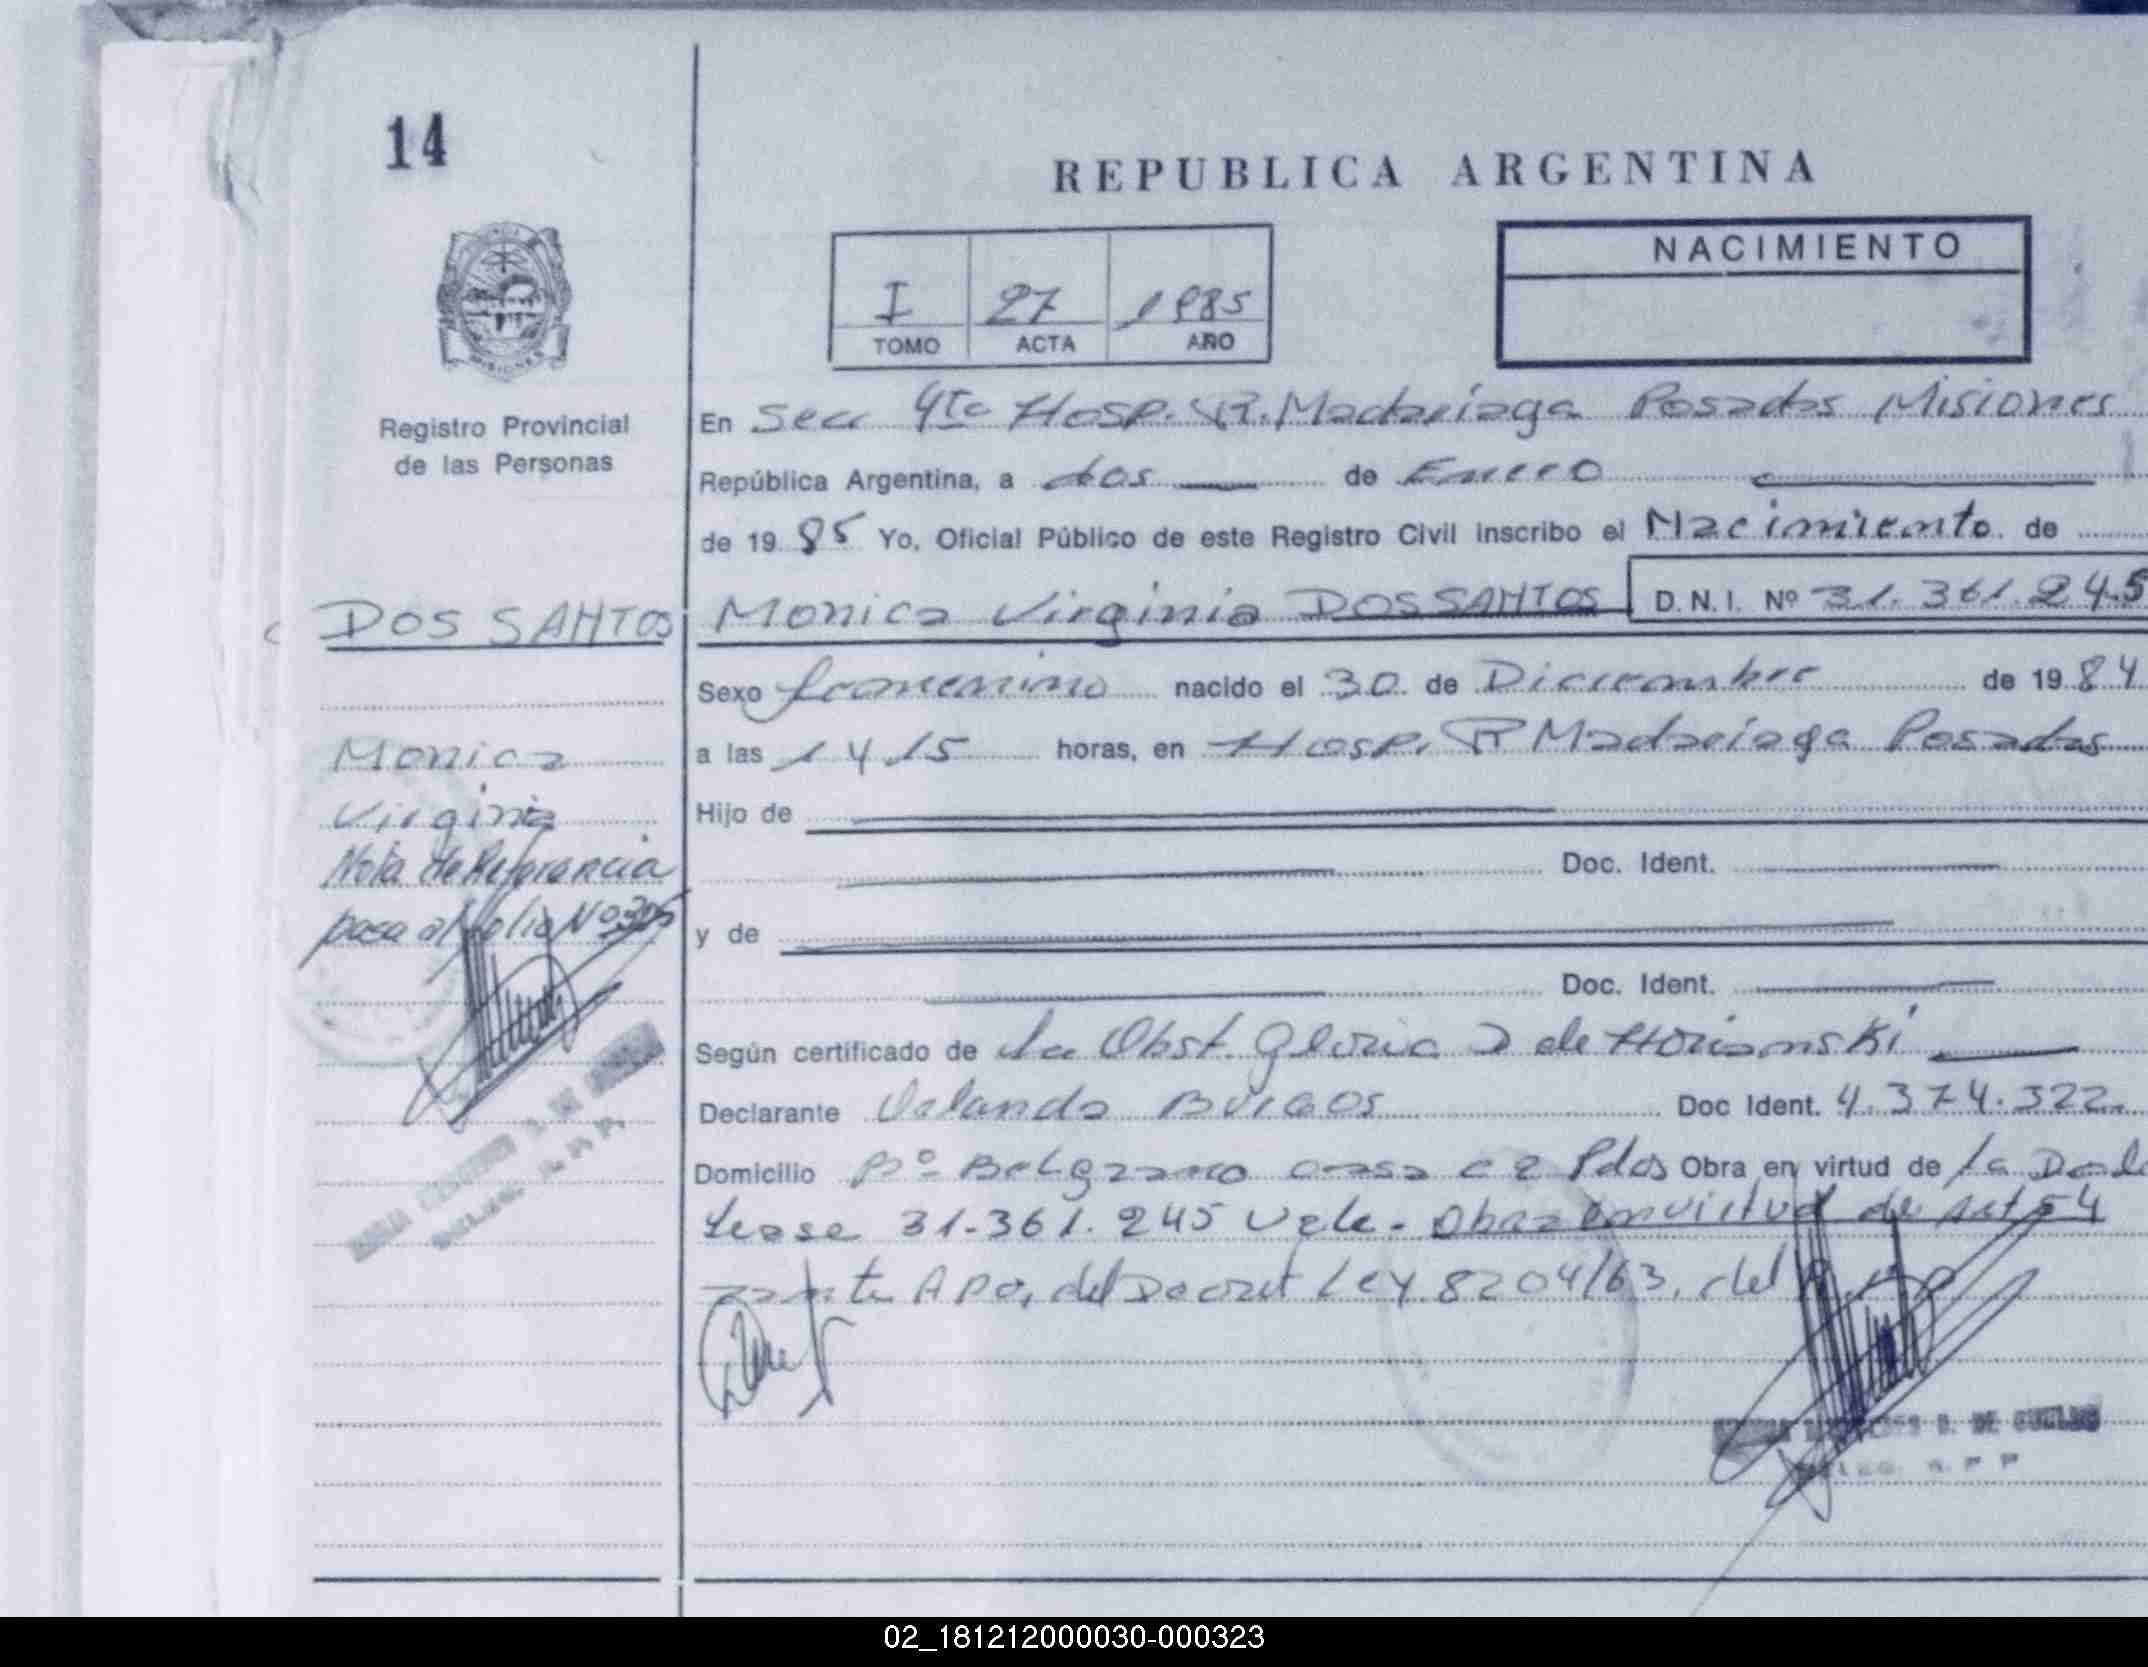 14
REPUBLICA ARGENTINA
NACIMIENTO
I 27 1985
TOMO ACTA AÑO
MISIONES
Registro Provincial
de las Personas
En Secc 4ta Hosp. R. Madariaga Posadas Misiones
República Argentina, a dos de Enero
de 19 85 Yo, Oficial Público de este Registro Civil inscribo el Nacimiento de
DOS SANTOS
Monica Virginia DOS SANTOS D.N.I. Nº 31.361.245
Sexo femenino nacido el 30 de Diciembre de 19 84
Monica
a las 14 15 horas, en Hosp. R Madariaga Posadas
Virginia
Hijo de
Nota de Referencia
Doc. Ident.
pasa al folio Nº 305
y de
Doc. Ident.
Según certificado de La Obst. Gloria D de Horianski
Declarante Orlando BURGOS Doc Ident. 4.374.322
Domicilio Bº Belgrano casa Pdas Obra en virtud de la
Lease 31-361.245 Vale. Obra en virtud de art 54
Ley 8204/63, del
DE
DELEG. R. P. P.
02_181212000030-000323